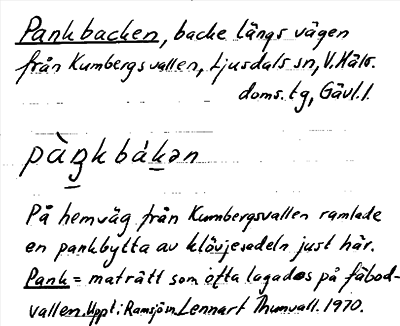 Pankbacken, backe längs vägen
från Kumbergsvallen, Ljusdals sn, V. Häls.
doms. tg, Gävl. l.
pàŋkbákən
På hemväg från Kumbergsvallen ramlade
en pankbytta av klövjesadeln just här.
Pank = maträtt som ofta lagades på fäbod-
vallen. Uppt: i Ramsjö av Lennart Thunvall. 1970.